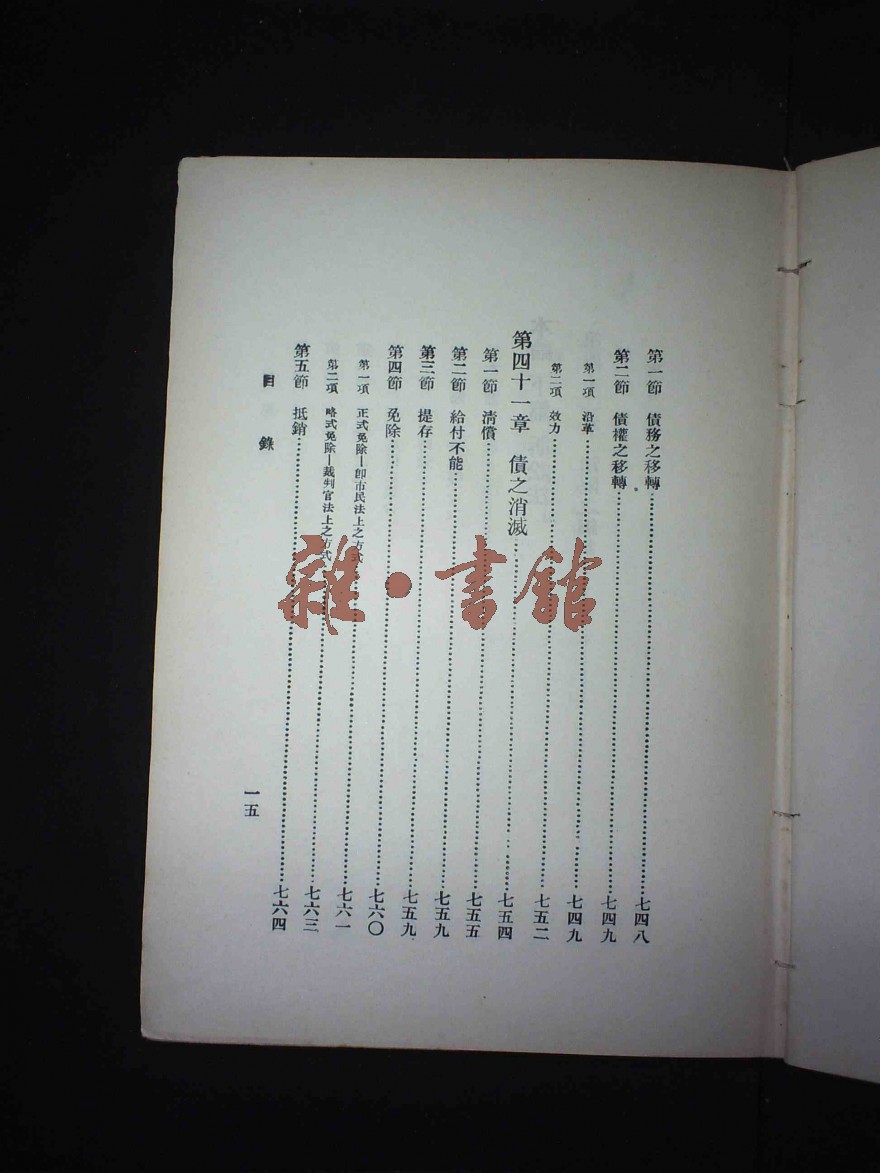 第一節　債務之移轉……七四八
第二節　債權之移轉……七四九
第一項　沿革……七四九
第二項　效力……七五二
第四十一章　債之消滅……七五四
第一節　淸償……七五五
第二節　給付不能……七五九
第三節　提存……七五九
第四節　免除……七六〇
第一項　正式免除—卽市民法上之方式……七六一
第二項　略式免除—裁判官法上之方式……七六三
第五節　抵銷……七六四
目錄
一五
雜・書館